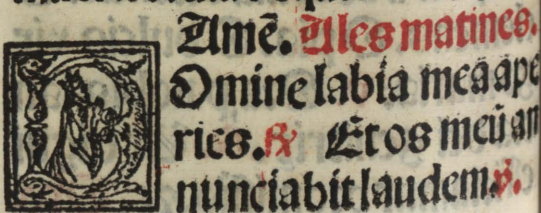 Amē. A les matines.
Domine labia mea ape
ries. ℟ Et os meū an
nunciabit laudem. ℣.